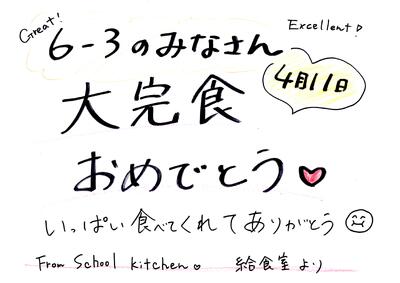 Great! Excellent!
6-3のみなさん
4月11日
大完食
おめでとう♥
いっぱい食べてくれてありがとう☺
From School kitchen♥ 給食室より